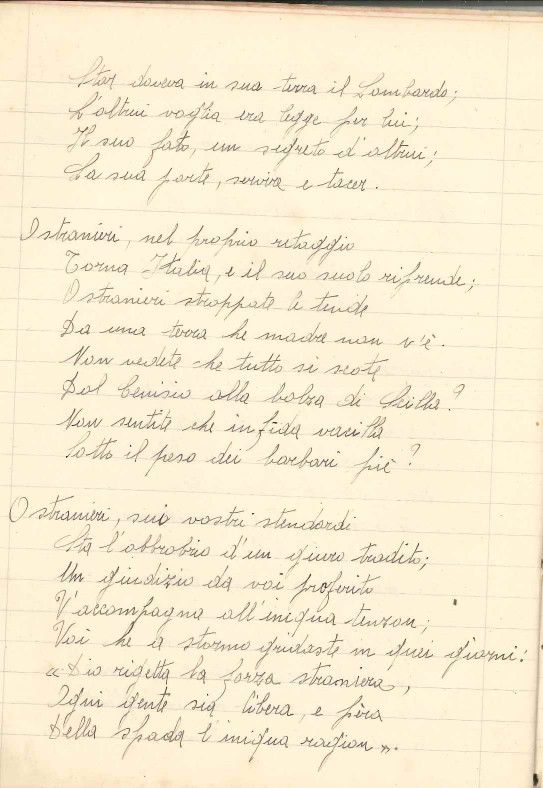 Star doveva in sua terra il Lombardo;
L'altrui voglia era legge per lui;
Il suo fato, un segreto d'altrui;
La sua parte, servire e tacer.
O stranieri, nel proprio retaggio
Torna Italia, e il suo suolo riprende;
O stranieri strappate le tende
Da una terra he madre non v'è.
Non vedete che tutto si scote
Dal Cenisio alla balza di Scilla?
Non sentite che infida vacilla
Sotto il peso dei barbari piè?
O stranieri, sui vostri stendardi
Sta l'obbrobrio d'un giuro tradito;
Un giudizio da voi proferito
V'accompagna all'iniqua tenzon;
Voi he a stormo gridaste in quei giorni:
«Dio rigetta la forza straniera,
Ogni gente sia libera, e pèra
Della spada l'iniqua ragion».